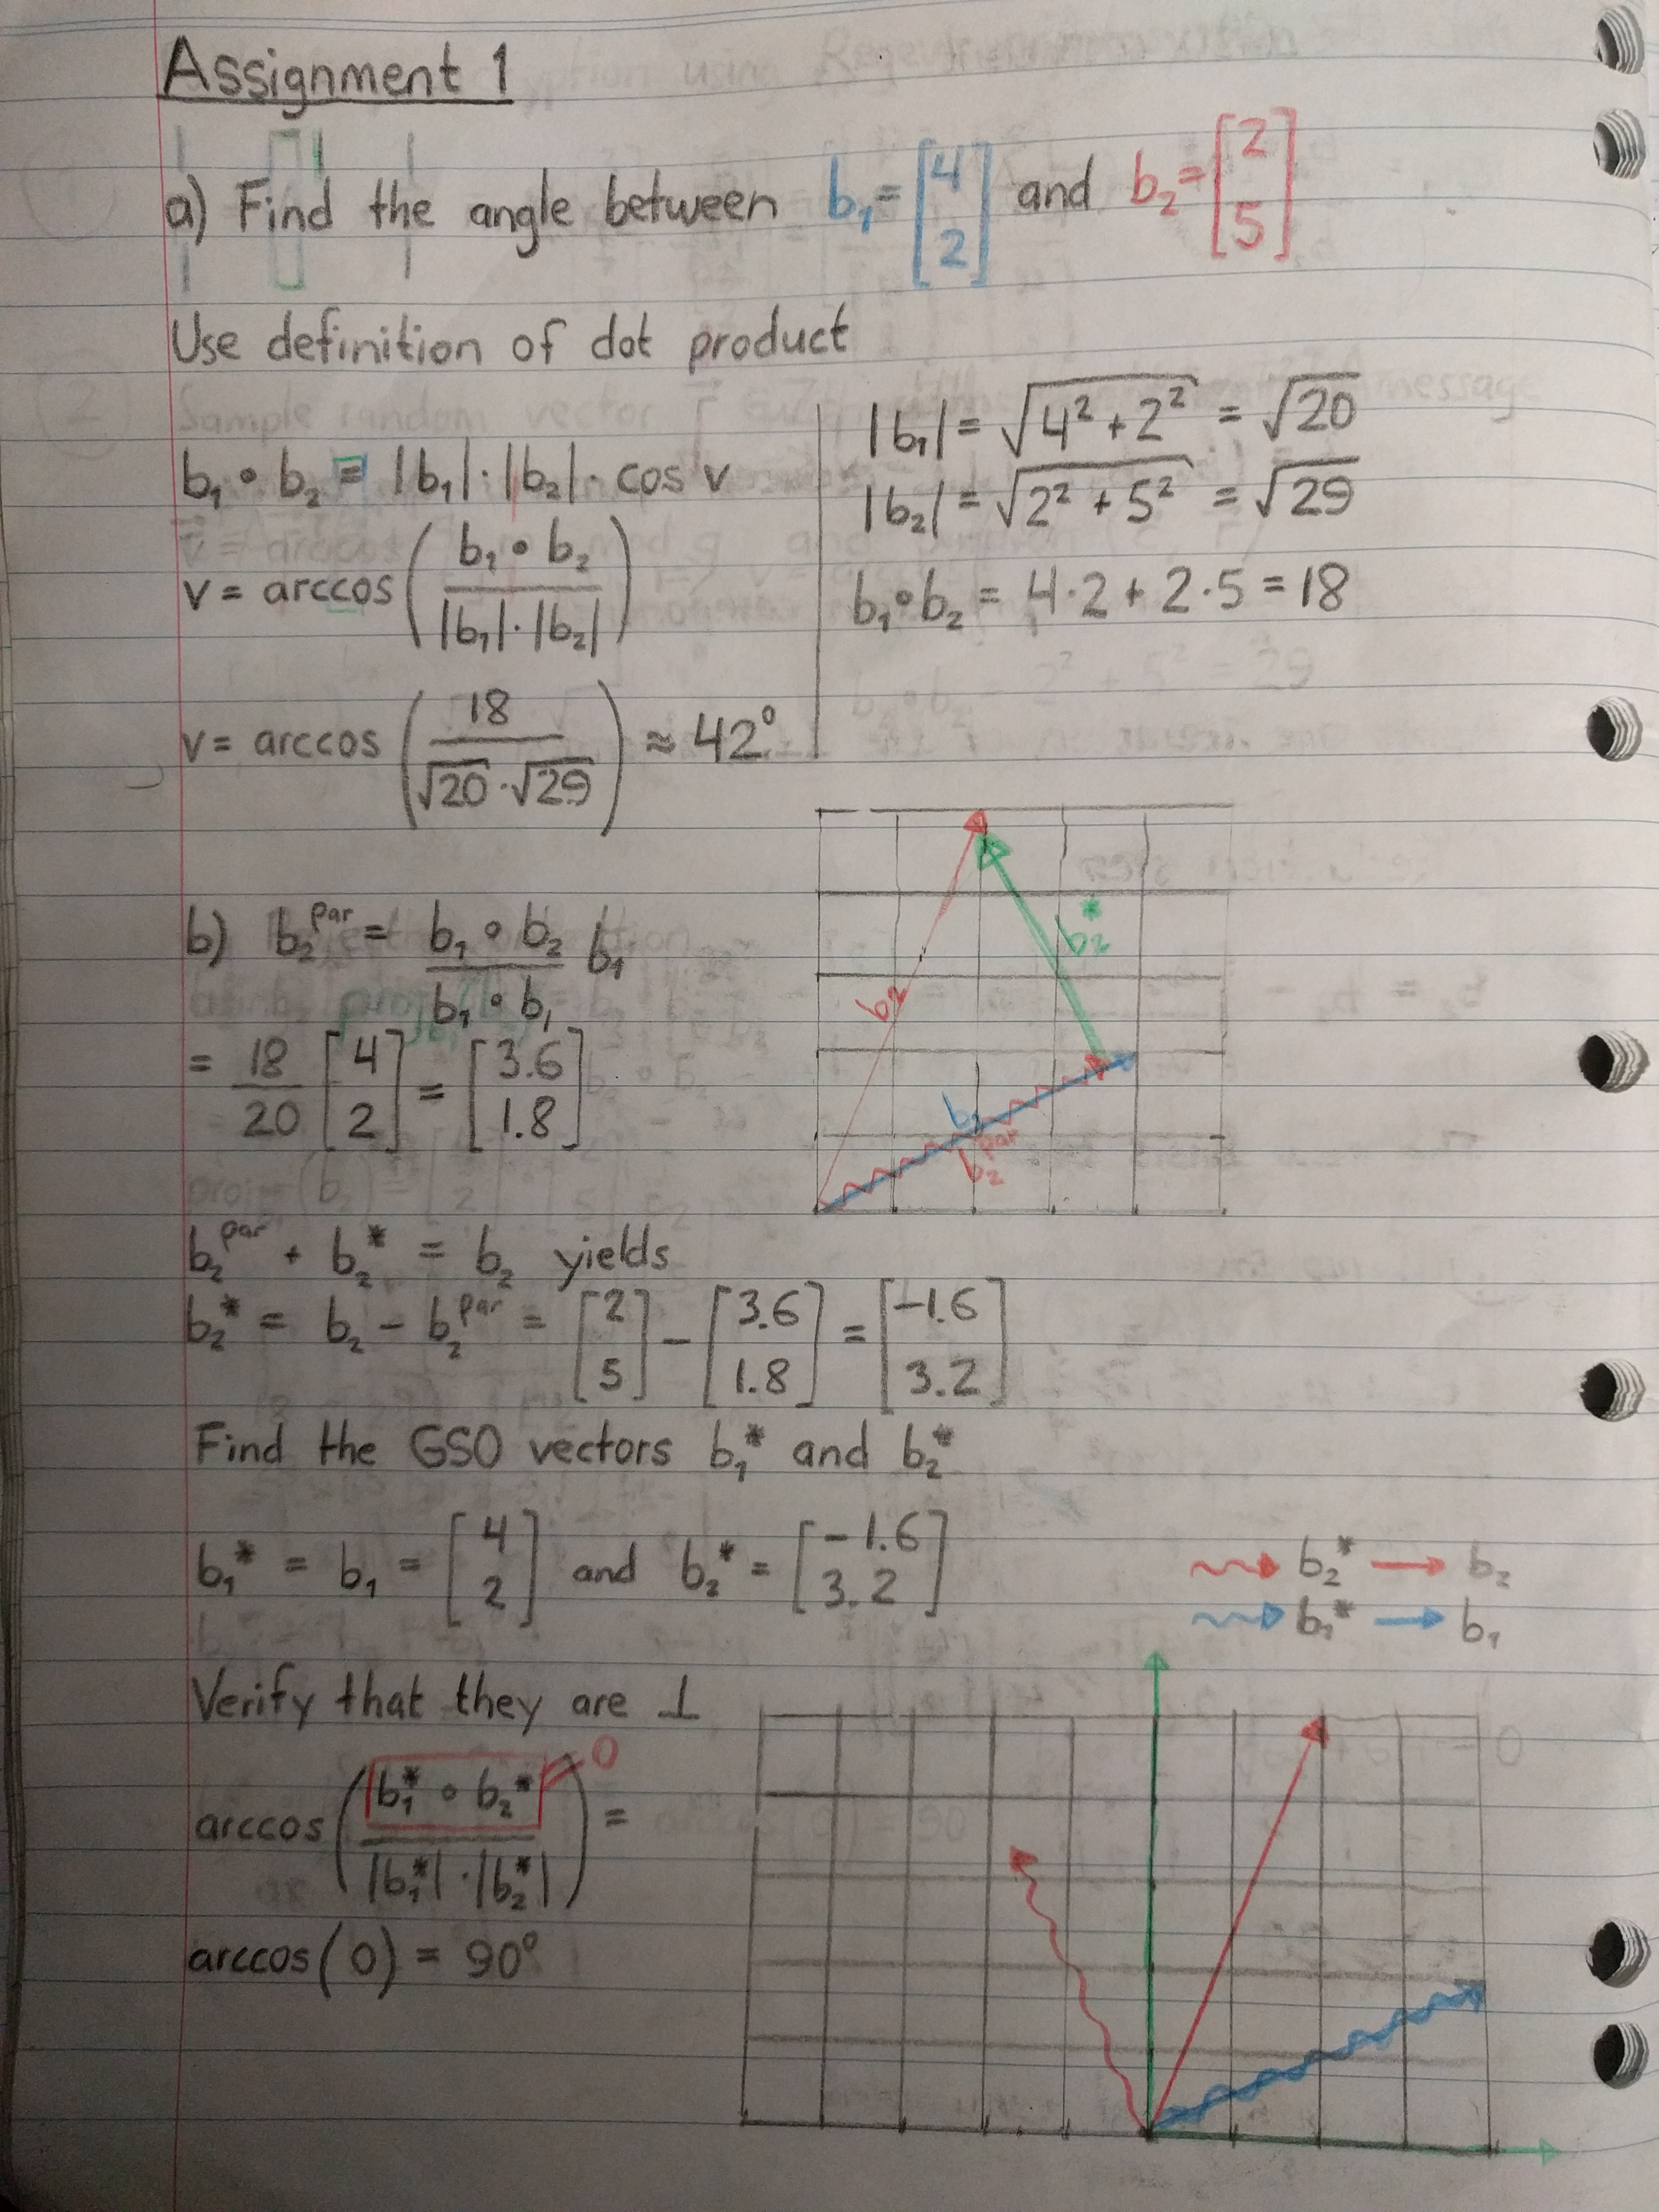 Assignment 1
a) Find the angle between b₁ = [4 2] and b₂ = [2 5]
Use definition of dot product
b₁ ∘ b₂ = |b₁| · |b₂| · cos v
v = arccos( b₁ ∘ b₂ / |b₁| · |b₂| )
v = arccos( 18 / √20 · √29 ) ≈ 42°
|b₁| = √4² + 2² = √20
|b₂| = √2² + 5² = √29
b₁ ∘ b₂ = 4·2 + 2·5 = 18
b) b₂ᵖᵃʳ = b₁ ∘ b₂ / b₁ ∘ b₁ b₁
= 18 / 20 [4 2] = [3.6 1.8]
b₂
b₂*
b₁
b₂ᵖᵃʳ
b₂ᵖᵃʳ + b₂* = b₂ yields
b₂* = b₂ − b₂ᵖᵃʳ = [2 5] − [3.6 1.8] = [−1.6 3.2]
Find the GSO vectors b₁* and b₂*
b₁* = b₁ = [4 2] and b₂* = [−1.6 3.2]
b₂* → b₂
b₁* → b₁
Verify that they are ⊥
arccos( b₁* ∘ b₂* / |b₁*| · |b₂*| ) =
0
arccos(0) = 90°